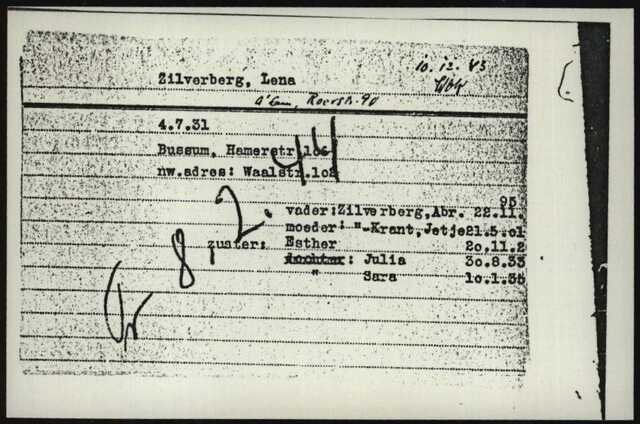 Zilverberg, Lena
10.12.43
A'dam, Roerstr. 90
4.7.31
Bussum, Hamerstr.106
nw.adres: Waalstr.102
95
vader:Zilverberg,Abr. 22.11.
moeder: "-Krant,Jetje21.5.01
zuster: Esther 20.11.2
dochter: Julia 30.8.33
" Sara 10.1.38
8.2.44